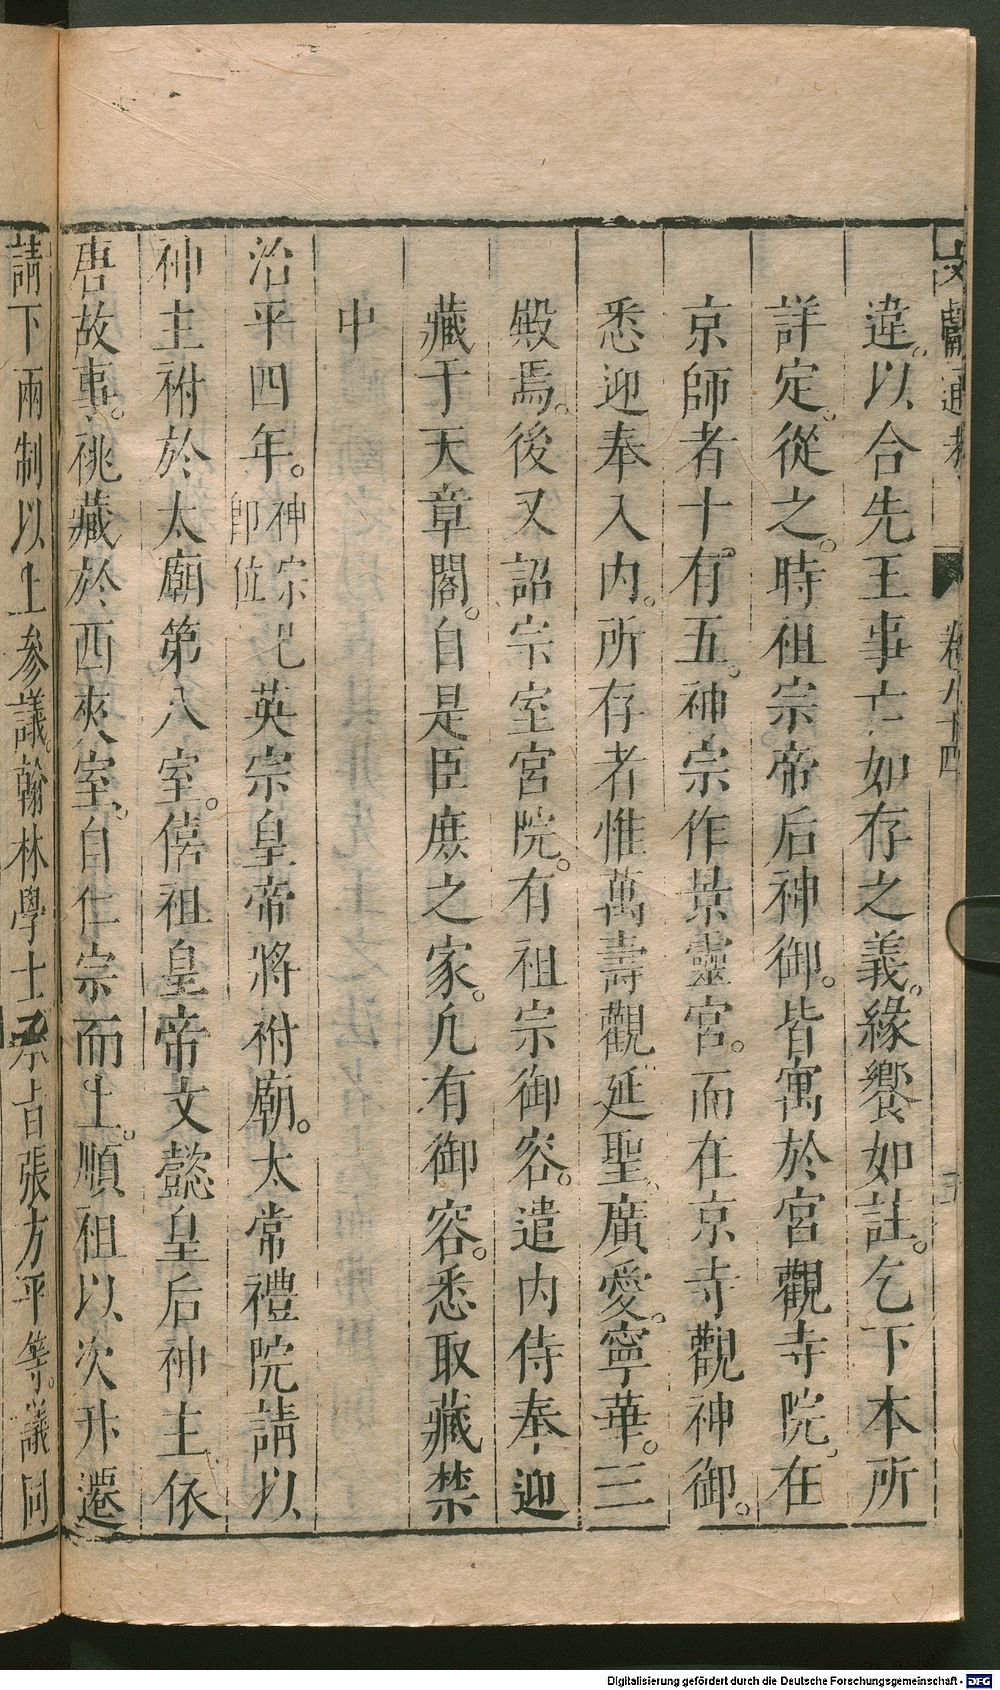 文獻通考 卷九十四
違。以合先王事亡如存之義。緣饗如註。乞下本所
詳定。從之。時祖宗帝后神御。皆寓於宮觀寺院。在
京師者十有五。神宗作景靈宮。而在京寺觀神御。
悉迎奉入內。所存者惟萬壽觀延聖。廣愛。寧華。三
殿焉。後又詔宗室宮院。有祖宗御容。遣內侍奉迎
藏于天章閣。自是臣庶之家。凡有御容。悉取藏禁
中
治平四年。神宗卽位已英宗皇帝將祔廟。太常禮院請以
神主祔於太廟第八室。僖祖皇帝文懿皇后神主依
唐故事。祧藏於西夾室。自仁宗而上。順祖以次升遷
請下兩制以上參議。翰林學士承旨張方平等。議同
Digitalisierung gefördert durch die Deutsche Forschungsgemeinschaft - DFG